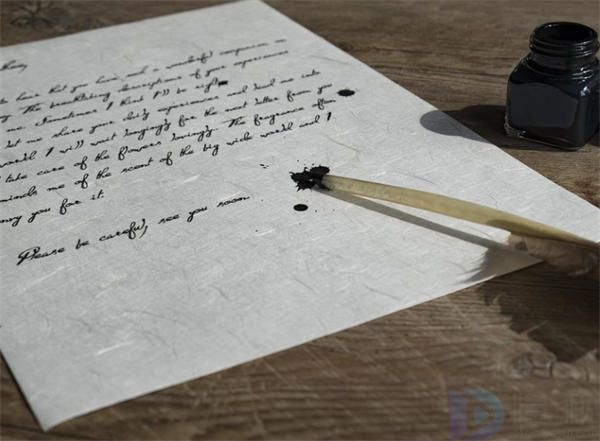 to have that you have such a wonderful companion on
by. The breathtaking descriptions of your experiences
me. Sometimes I think I'll be right
let me share your daily experiences and lead me into
world. I will wait longingly for the next letter from you
take care of the flowers lovingly. The fragrance often
reminds me of the scent of the big wide world and I
envy you for it.
Please be careful, see you soon.